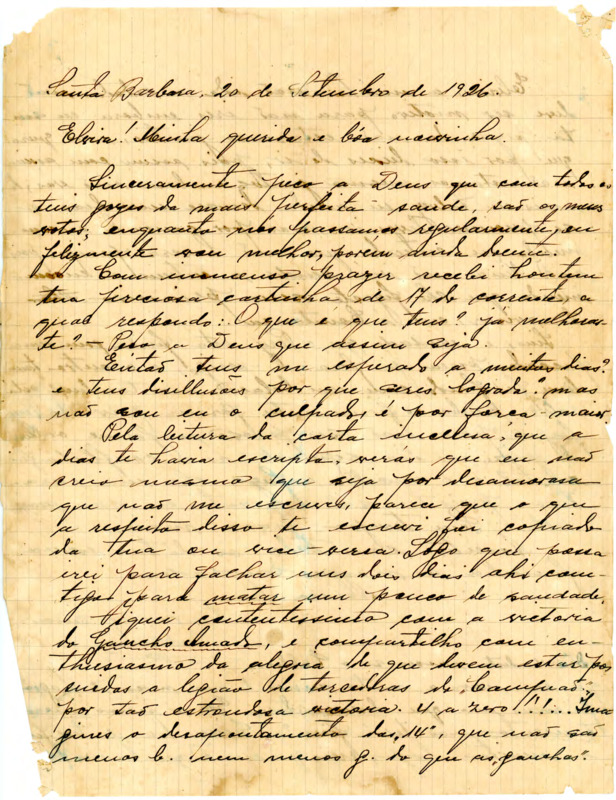 Santa Barbara, 20 de Setembro de 1926.
Elvira! Minha querida e bôa noivinha.
Sinceramente peço a Deus que com todos os
teus gozes da mais perfeita saude, são os meus
votos; enquanto nos passamos regularmente, eu
felizmente vou melhor, porem ainda doente.
Com immenso prazer recebi hontem
tua preciosa cartinha de 17 do corrente a
qual respondo: O que e que tens? já melhoras-
te? — Peço a Deus que assim seja.
Então teus me esperado a muitos dias?
e teus disillusões por que seres lograda" mas
não sou eu o culpado, é por força-maior.
Pela leitura da carta inclusa, que a
dias te havia escripto, veras que eu não
creio mesmo que seja por desamorosa
que não me escreves, parece que o que
a respeito disso te escrevi foi copiado
da tua ou vice-versa. Logo que possa
irei para falhar uns dois dias ahi com-
tigo para matar um pouco de saudade.
Fiquei contentissimo com a victoria
do Gaucho Amado, e compartilho com en-
thusiasmo da alegria de que devem estar pos
suidas a legião de torcedoras do "Campeão"
por tão estrondosa victoria. 4 a zero!!!... Ima
gines o desapontamento das "14", que não são
menos b. nem menos g. do que as "gauchas".